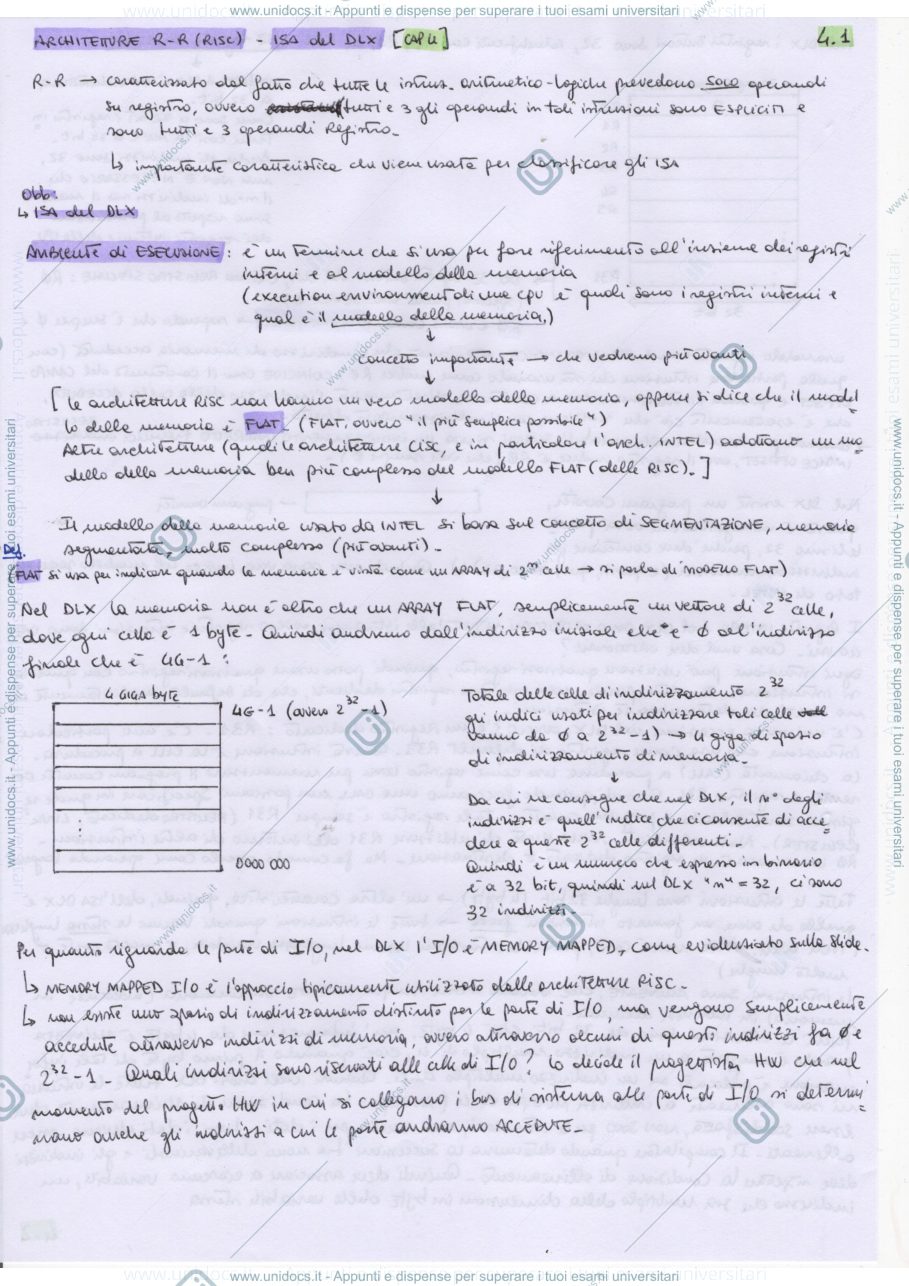 www.unidocs.it - Appunti e dispense per superare i tuoi esami universitari
ARCHITETTURE R-R (RISC) - ISA del DLX [CAP 4] 4.1
R-R → caratterizzato dal fatto che tutte le istruz. aritmetico-logiche prevedono solo operandi
su registro, ovvero tutti e 3 gli operandi in tali istruzioni sono ESPLICITI e
sono tutti e 3 operandi Registro.
↳ importante caratteristica che viene usata per classificare gli ISA
Obb:
↳ ISA del DLX
AMBIENTE di ESECUZIONE: è un termine che si usa per fare riferimento all'insieme dei registri
interni e al modello della memoria
(execution environment di una cpu è quali sono i registri interni e
qual è il modello della memoria.)
↓
Concetto importante → che vedremo più avanti
↓
[ le architetture RISC non hanno un vero modello della memoria, oppure si dice che il model
lo della memoria è FLAT. (FLAT, ovvero "il più semplice possibile")
Altre architetture (quali le architetture CISC, e in particolare l'arch. INTEL) adottano un mo
dello della memoria ben più complesso del modello FLAT (delle RISC). ]
↓
Il modello della memoria usato da INTEL si basa sul concetto di SEGMENTAZIONE, memoria
segmentata, molto complesso (più avanti).
(FLAT si usa per indicare quando la memoria è vista come un ARRAY di 2ᵐ celle → si parla di MODELLO FLAT)
Nel DLX la memoria non è altro che un ARRAY FLAT, semplicemente un vettore di 2³² celle,
dove ogni cella è 1 byte. Quindi andremo dall'indirizzo iniziale che è ∅ all'indirizzo
finale che è 4G-1 :
4 GIGA byte
4G-1 (ovvero 2³²-1)
0000 000
Totale delle celle di indirizzamento 2³²
gli indici usati per indirizzare tali celle
vanno da ∅ a 2³²-1) → 4 giga di spazio
di indirizzamento di memoria.
↓
Da cui ne consegue che nel DLX, il n° degli
indirizzi è quell'indice che ci consente di acce
dere a queste 2³² celle differenti.
Quindi è un numero che espresso in binario
è a 32 bit, quindi nel DLX "n" = 32, ci sono
32 indirizzi.
Per quanto riguarda le porte di I/O, nel DLX l'I/O è MEMORY MAPPED, come evidenziato sulla slide.
↳ MEMORY MAPPED I/O è l'approccio tipicamente utilizzato dalle architetture RISC.
↳ non esiste uno spazio di indirizzamento distinto per le porte di I/O, ma vengono semplicemente
accedute attraverso indirizzi di memoria, ovvero attraverso alcuni di questi indirizzi fra ∅ e
2³²-1. Quali indirizzi sono riservati alle celle di I/O? Lo decide il progettista HW che nel
momento del progetto HW in cui si collegano i bus di sistema alle porte di I/O si determi
nano anche gli indirizzi a cui le porte andranno ACCEDUTE.
www.unidocs.it - Appunti e dispense per superare i tuoi esami universitari